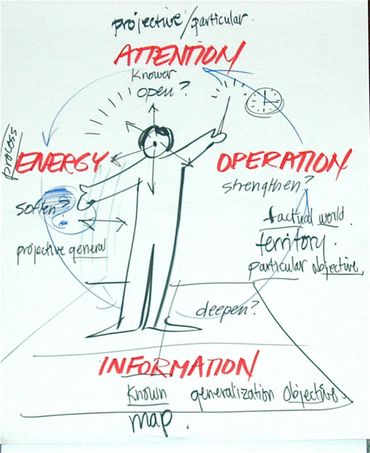 projective/particular
ATTENTION
Knower
open?
process
ENERGY
OPERATION
strengthen?
soften?
factual world
projective general
territory.
particular objective
deepen?
INFORMATION
Known generalization objective
map.